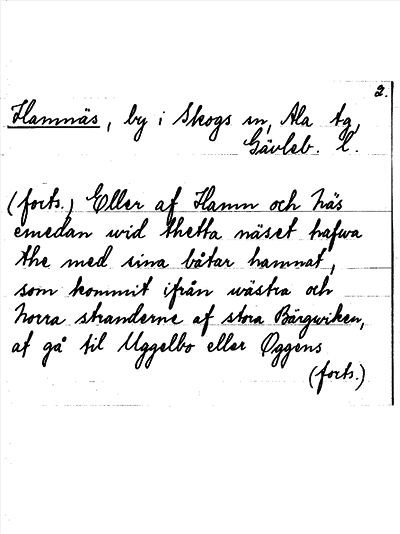 2.
Hamnäs, by i Skogs sn, Ala tg,
Gävleb. l.
(forts.) Eller af Hamn och Näs
emedan wid thetta näset hafwa
the med sina båtar hamnat,
som kommit ifrån wästra och
norra stranderne af stora Bärgwiken,
at gå til Uggelbo eller Öggens
(forts.)